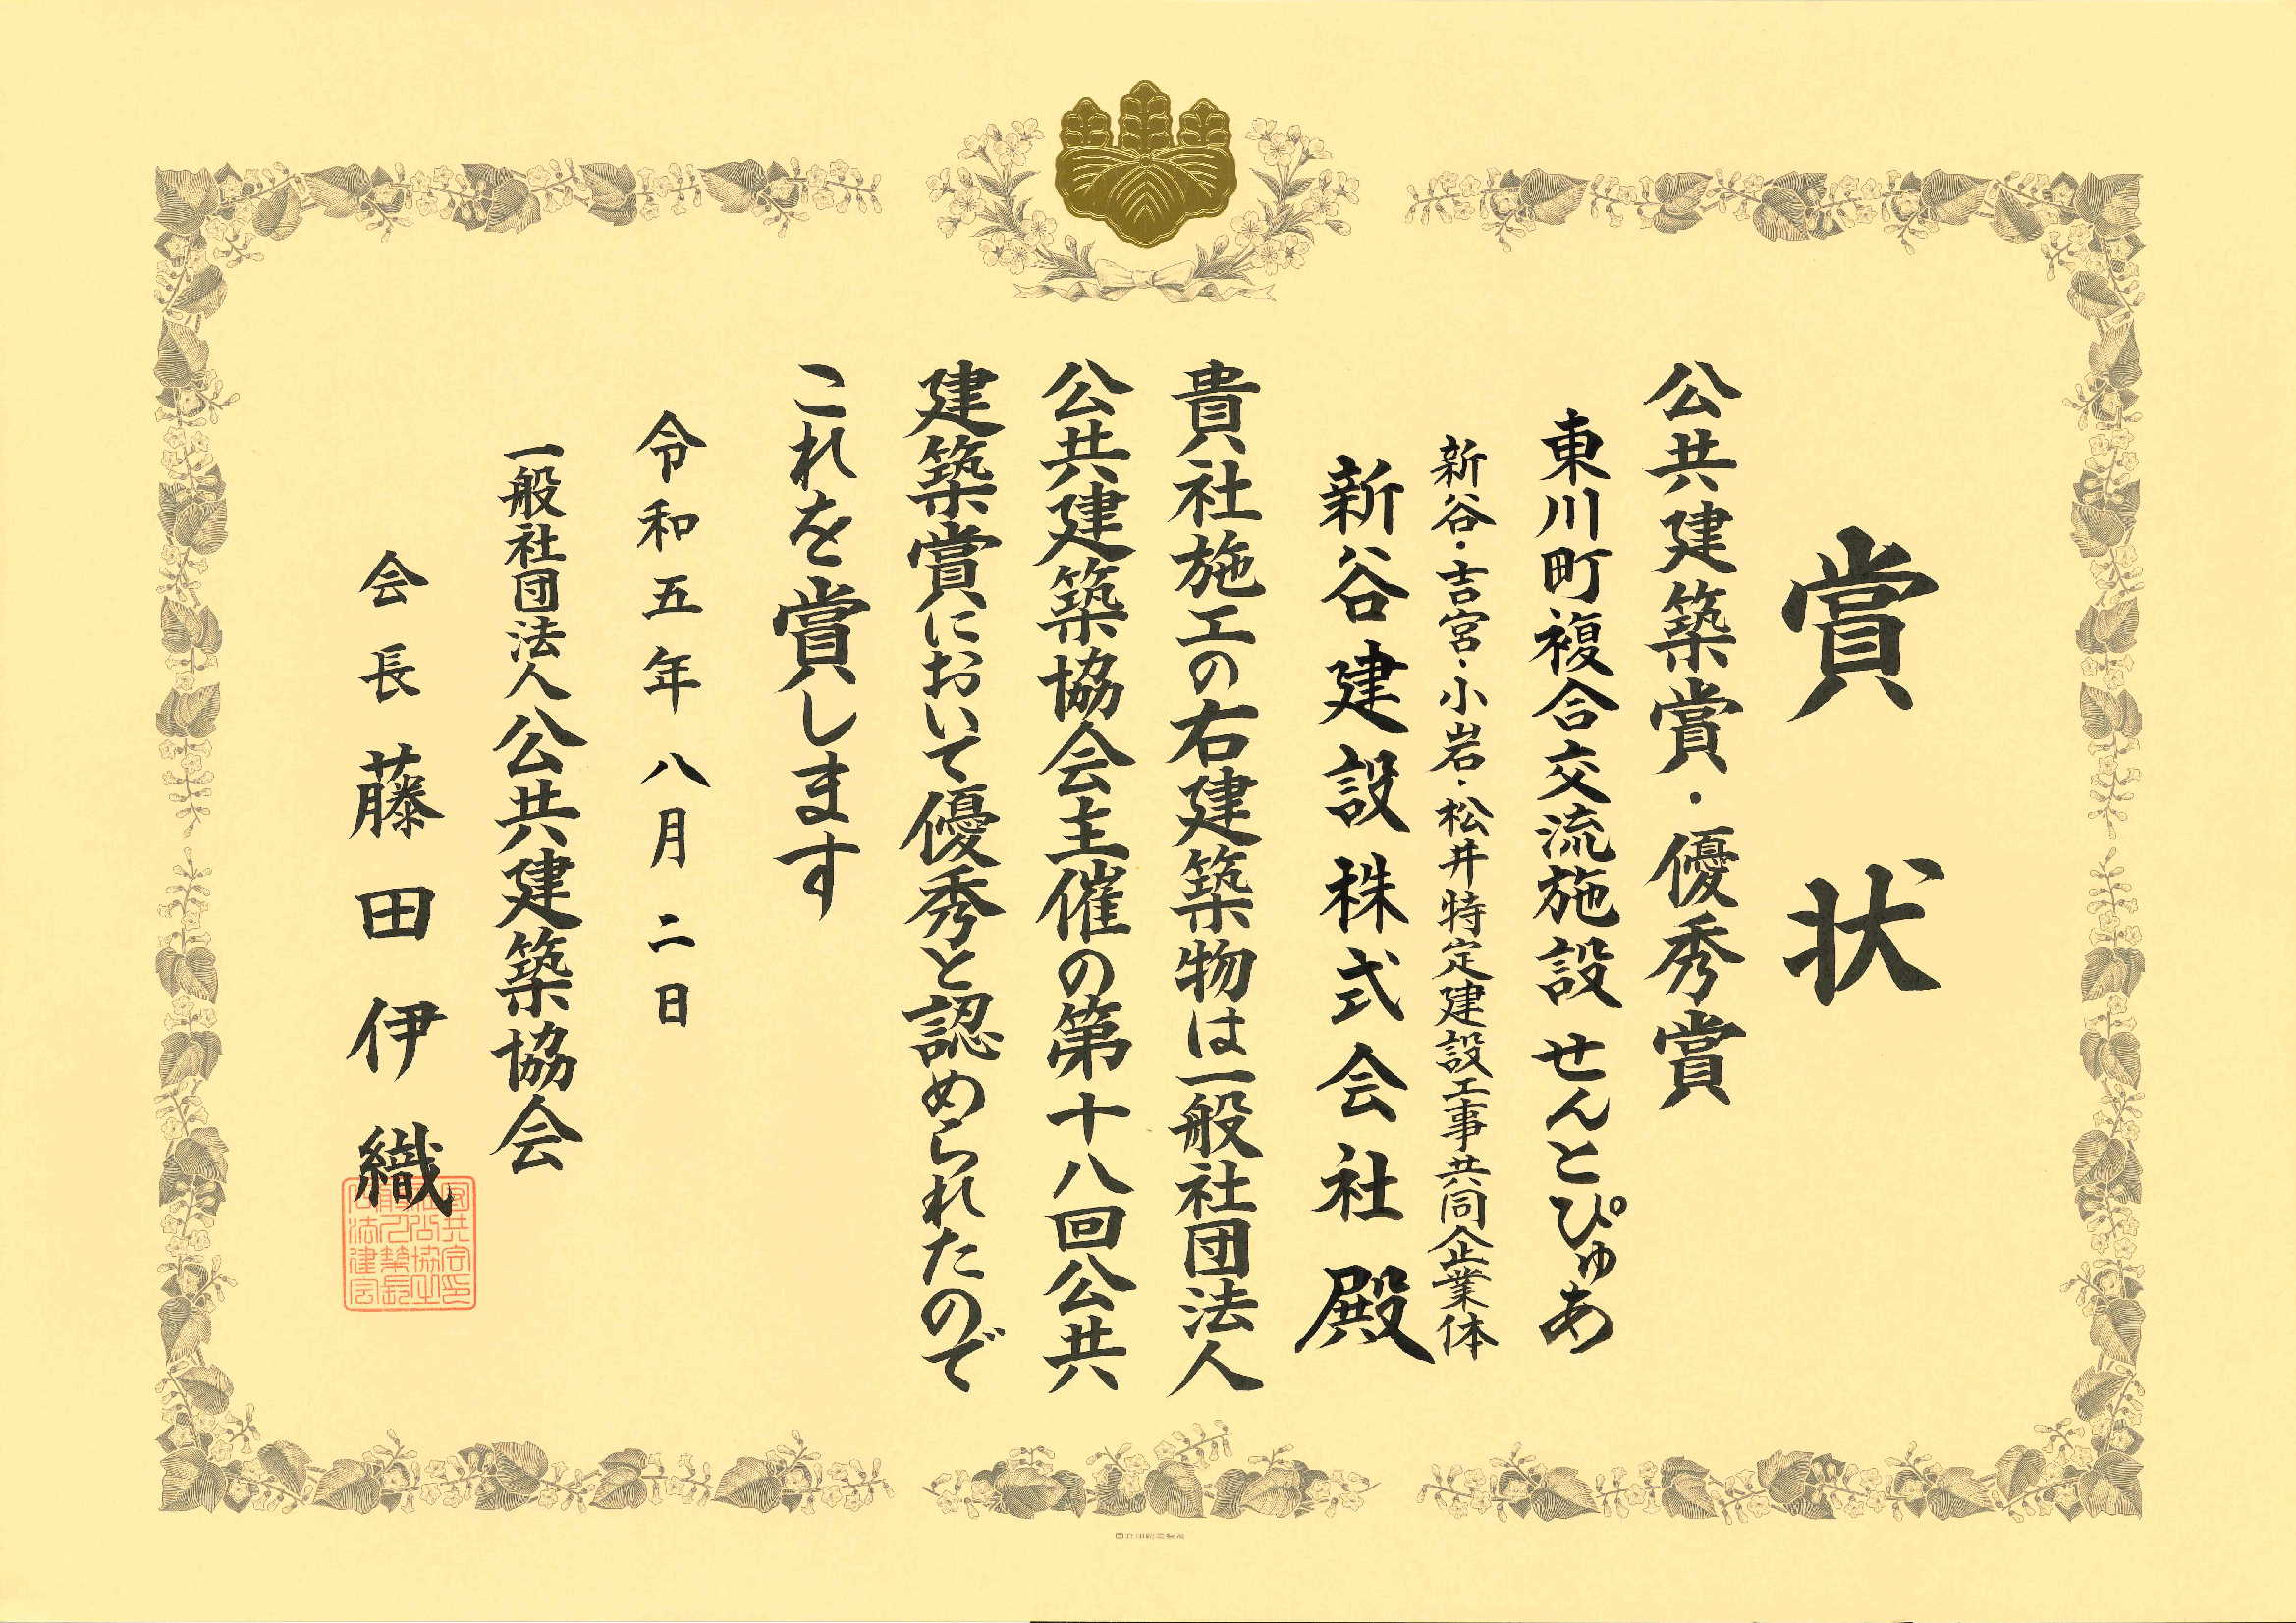 賞状
公共建築賞・優秀賞
東川町複合交流施設 せんとぴゅあ
新谷・吉宮・小岩・松井特定建設工事共同企業体
新谷建設株式会社 殿
貴社施工の右建築物は一般社団法人
公共建築協会主催の第十八回公共
建築賞において優秀と認められたので
これを賞します
令和五年八月二日
一般社団法人公共建築協会
会長 藤田伊織